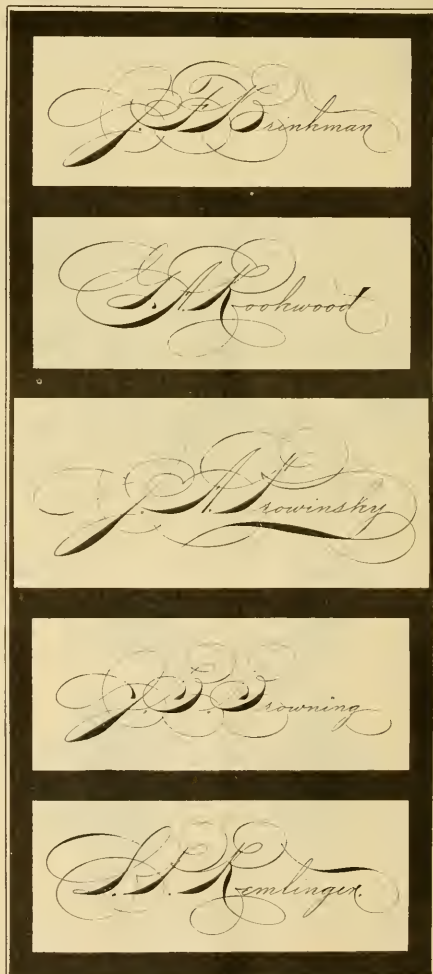 J. F. Brinkman
G. A. Rookwood
J. A. Prowinsky
J. B. Browning
S. P. Remlinger.